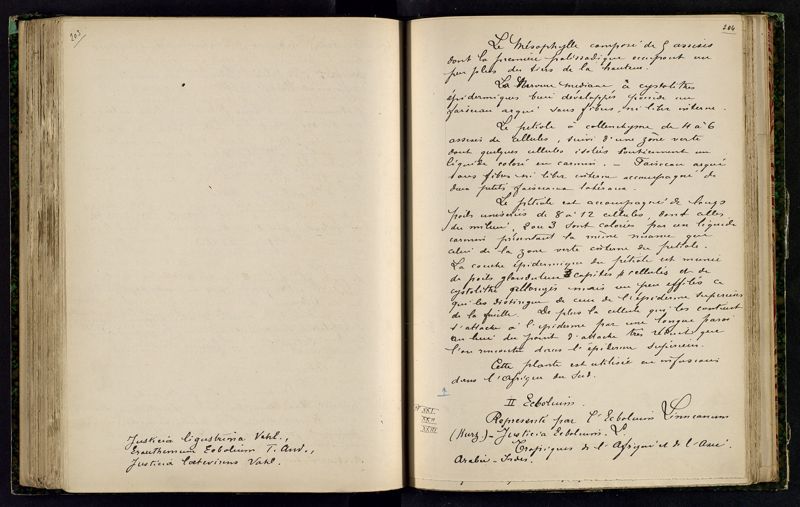 203
Justicia ligustrina Vahl.,
Eranthemum Ecbolium T. And.,
Justicia laetevirens Vahl.
204
Le Mésophylle composé de 5 assises
dont la première palissadique occupant un
peu plus du tiers de la hauteur.
La Nervure mediane à cystolithes
épidermiques bien développés possède un
faisceau arqué sans fibres, ni liber interne.
Le pétiole à collenchyme de 4 à 6
assises de cellules, suivi d'une zone verte
dont quelques cellules isolées contiennent un
liquide coloré en carmin. — Faisceau arqué
sans fibres ni liber interne accompagné de
deux petits faisceaux latéraux.
Le pétiole est accompagné de longs
poils unisériés de 8 à 12 cellules, dont celles
du milieu, 2 ou 3 sont colorées par un liquide
carmin présentant la même nuance que
celui de la zone verte interne du pétiole.
La couche épidermique du pétiole est munie
de poils glanduleux capités 4 cellules et de
cystolithes allongés mais un peu effilés ce
qui les distingue de ceux de l'épiderme superieur
de la feuille. De plus la cellule qui les contient
s'attache à l'épiderme par une longue paroi
au lieu du point d'attache très réduit que
l'on rencontre dans l'épiderme supérieur.
Cette plante est utilisée en infusions
dans l'Afrique du Sud.
II Ecbolium.
XXI
XXII
XXIII
Représenté par l'Ecbolium Linneanum
(Kurz) - Justicia Ecbolium. L
Tropiques de l'Afrique et de l'Asie.
Arabie - Indes.